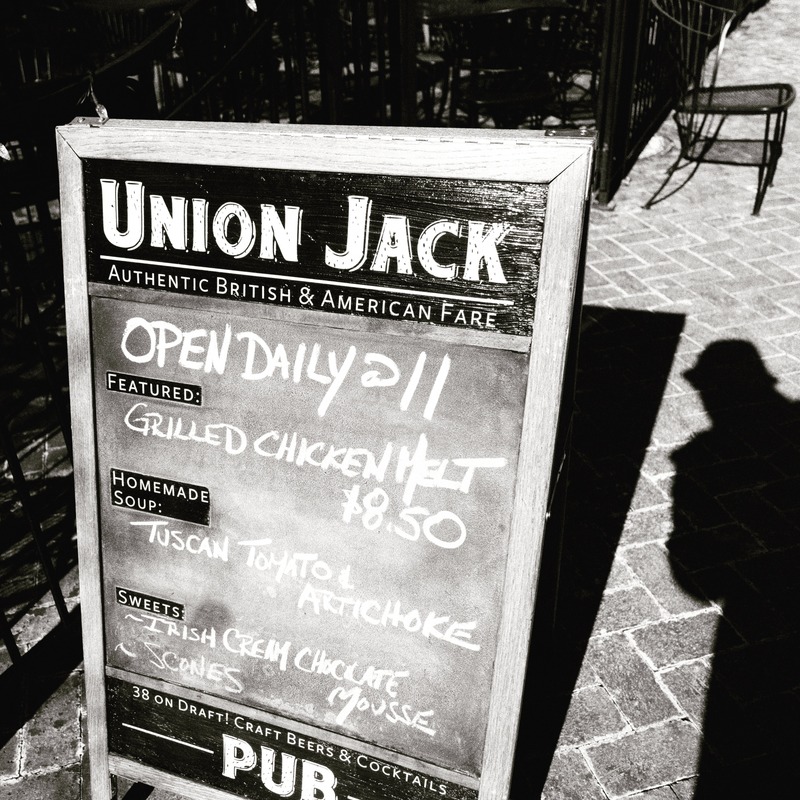 UNION JACK
AUTHENTIC BRITISH & AMERICAN FARE
OPEN DAILY @ 11
FEATURED:
GRILLED CHICKEN MELT
$8.50
HOMEMADE
SOUP:
TUSCAN TOMATO &
ARTICHOKE
SWEETS:
~IRISH CREAM CHOCLATE
MOUSSE
~ SCONES
38 ON DRAFT! CRAFT BEERS & COCKTAILS
PUB